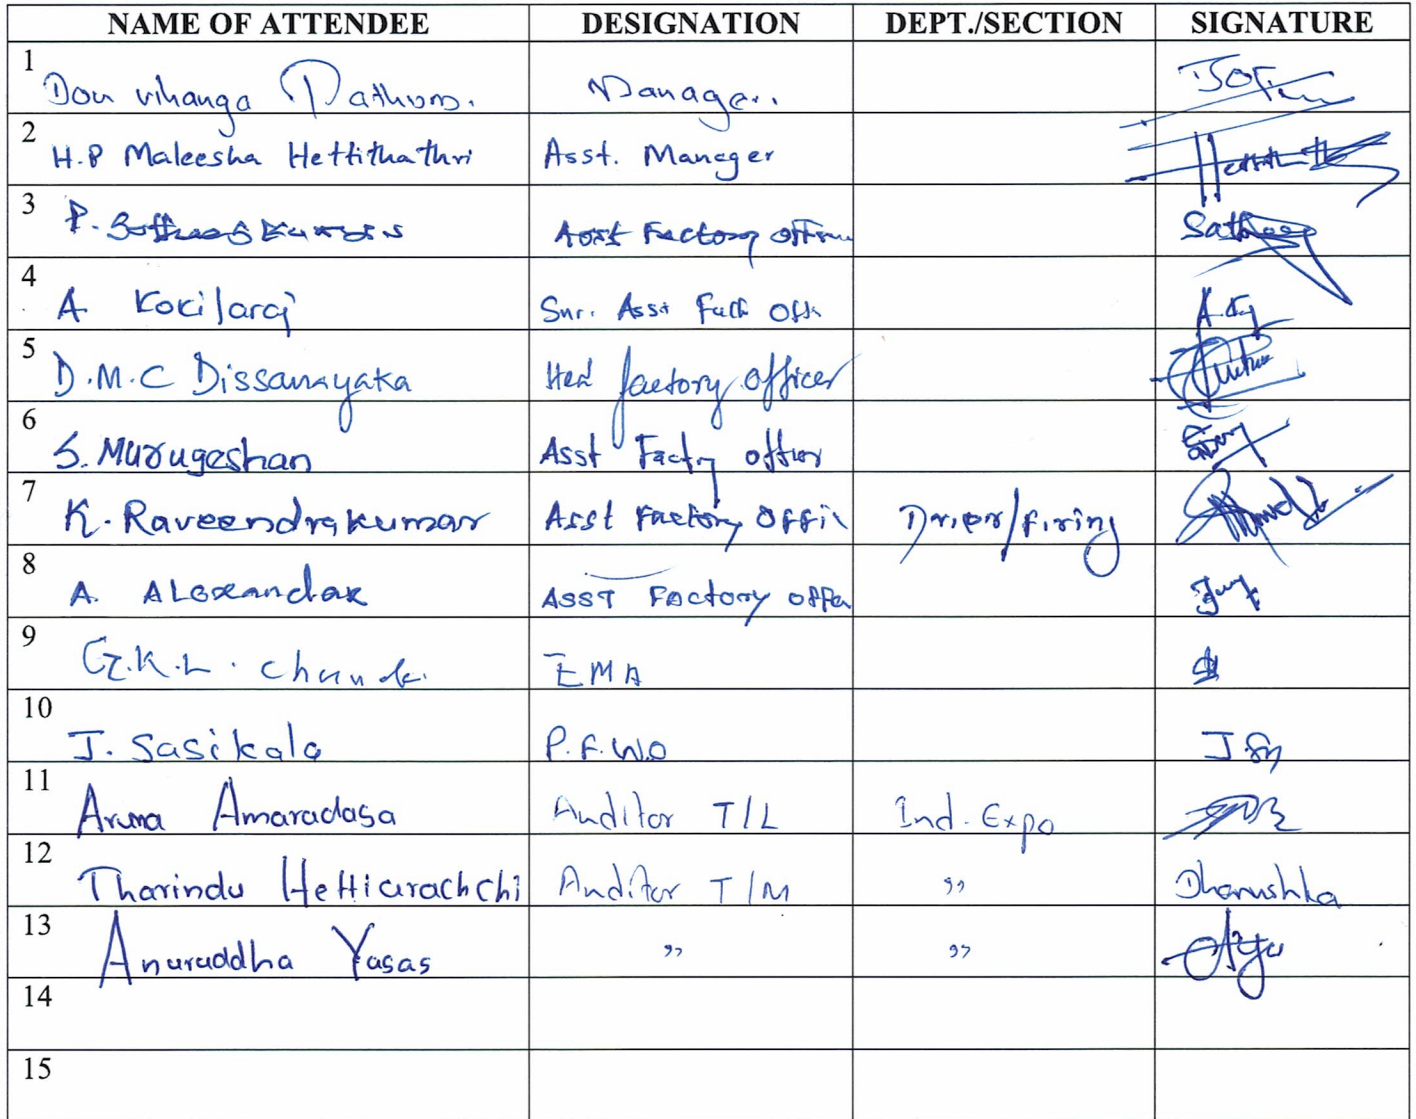 NAME OF ATTENDEE DESIGNATION DEPT./SECTION SIGNATURE
1 Don vihanga Manager.
2 H.P Maleesha Hettithathri Asst. Manager
3 P. Asst Factory
4 A. Kokilaraj Snr. Asst
5 D.M.C Dissanayaka Hed factory officer
6 S. Murugeshan Asst Factry
7 K. Raveendrakumar Asst Factory Offi Drier/firing
8 A. ALexandar ASST Factory offer
9 G.K.L. EMA
10 J. Sasikala P.F.W.O
11 Aruna Amaradasa Auditor T/L Ind. Expo
12 Tharindu Hettiarachchi Auditor T/M " Dhanushka
13 Anuruddha Yasas " "
14
15